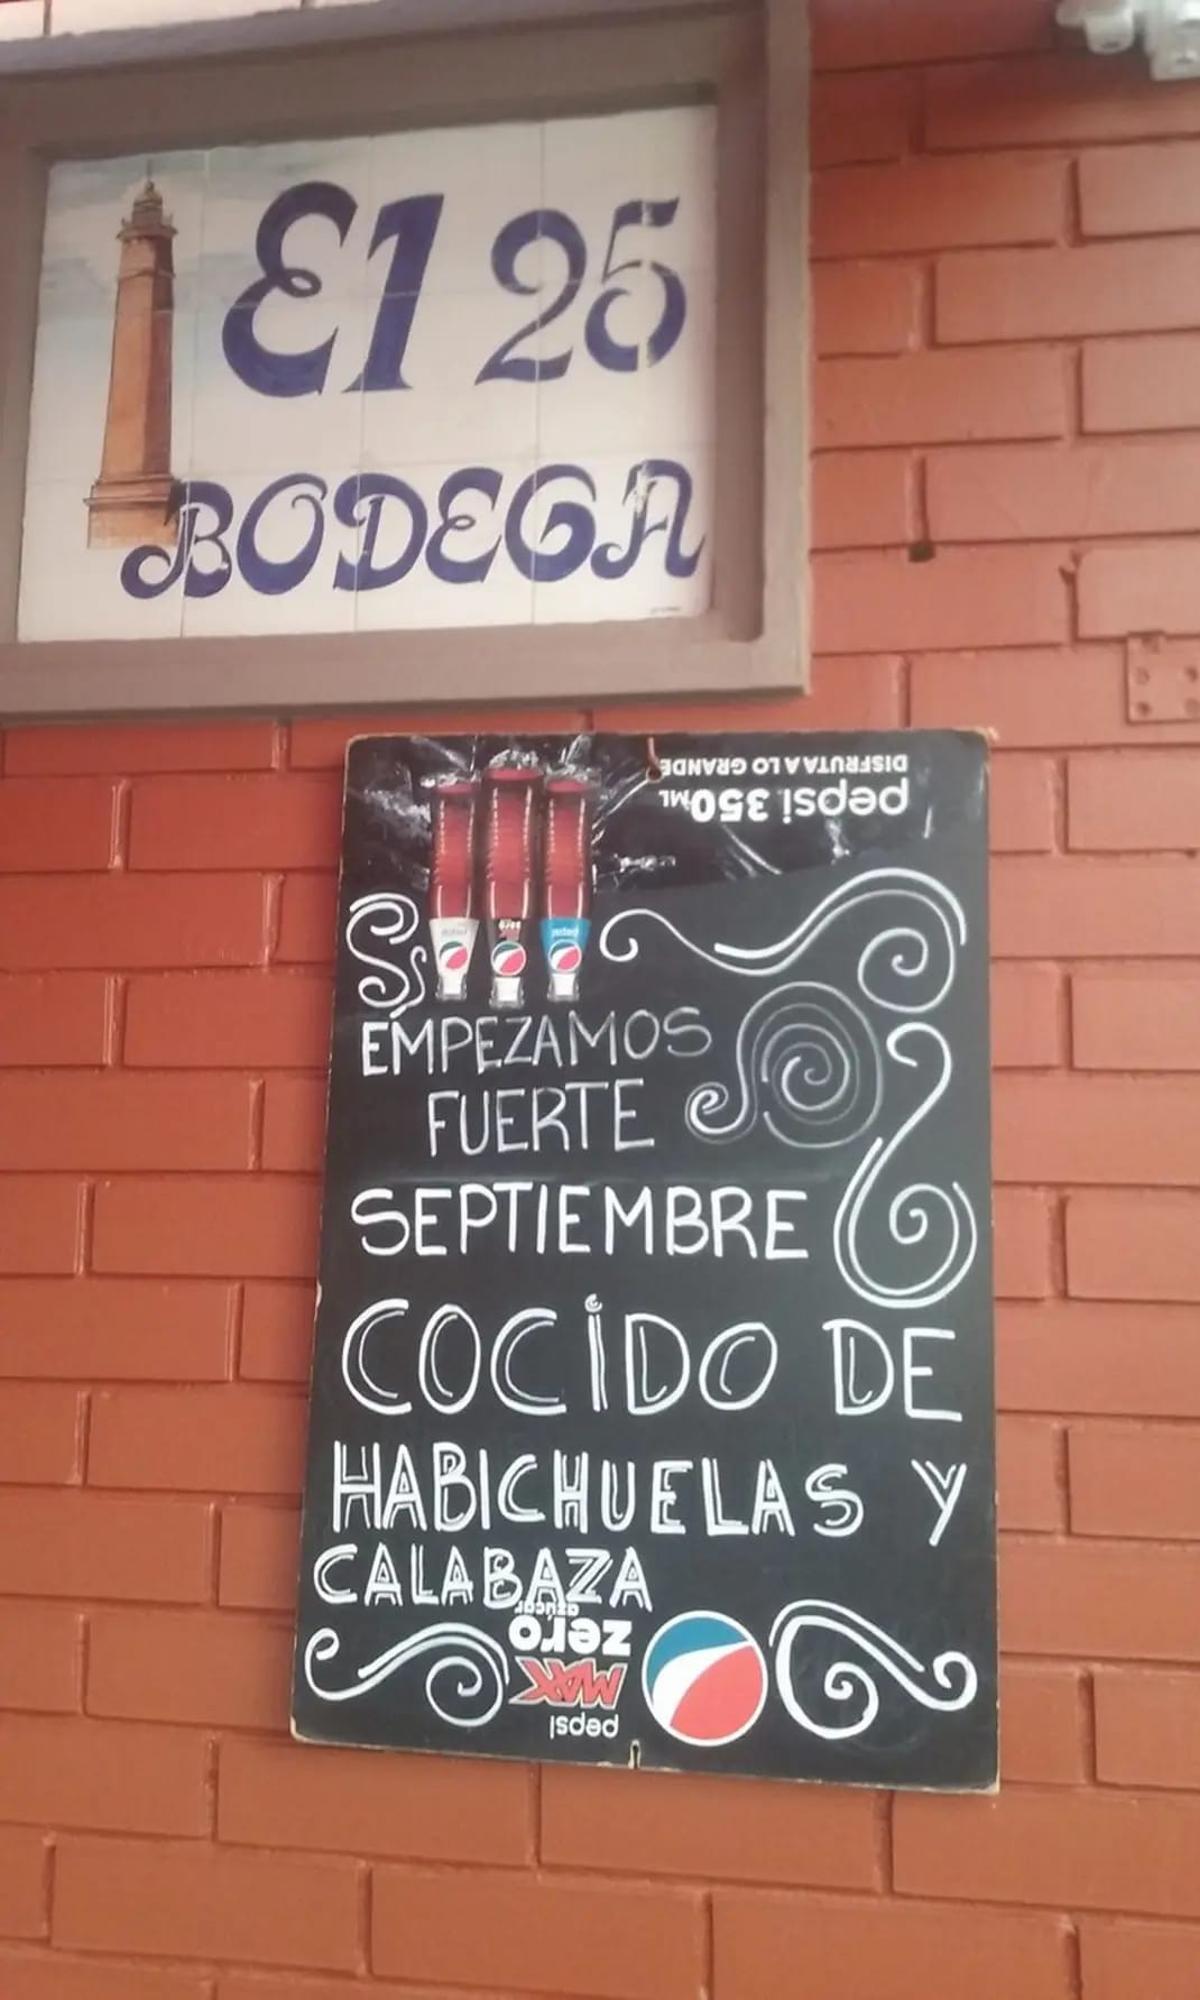 El 25
BODEGA
DISFRUTA A LO GRANDE
pepsi 350 ML
EMPEZAMOS
FUERTE
SEPTIEMBRE
COCIDO DE
HABICHUELAS Y
CALABAZA
azúcar
zero
MAX
pepsi